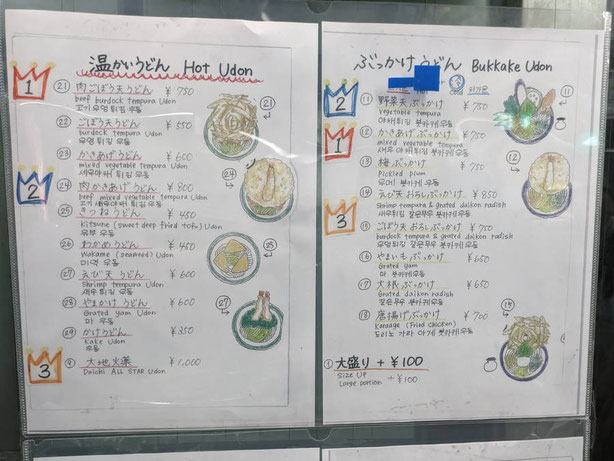 温かいうどん Hot Udon
1
㉑ 肉ごぼう天うどん ¥750
beef burdock tempura Udon
고기 우엉 튀김 우동
㉒ ごぼう天うどん ¥550
burdock tempura Udon
우엉튀김 우동
㉓ かきあげうどん ¥600
mixed vegetable tempura Udon
새우야채 튀김 우동
2
㉔ 肉かきあげうどん ¥800
beef mixed vegetable tempura Udon
고기 새우야채 튀김 우동
㉕ きつねうどん ¥450
Kitsune (sweet deep fried tofu) Udon
유부 우동
㉖ わかめうどん ¥450
Wakame (seaweed) Udon
미역 우동
㉗ えび天うどん ¥600
Shrimp tempura Udon
새우 튀김 우동
㉘ やまかけうどん ¥600
Grated yam Udon
마 우동
㉙ かけうどん ¥350
Kake Udon
우동
3
大地火薬 ¥1,000
Daichi ALL STAR Udon
㉑
㉔
㉕
㉗
ぶっかけうどん Bukkake Udon
Cold
2
⑪ 野菜天ぶっかけ ¥750
vegetable tempura
야채튀김 붓카케우동
1
⑫ かきあげぶっかけ ¥750
mixed vegetable tempura
새우 야채튀김 붓카케 우동
⑬ 梅ぶっかけ ¥750
Pickled plum
우메 붓카케 우동
⑭ えび天おろしぶっかけ ¥850
Shrimp tempura & grated daikon radish
새우튀김 갈은무우 붓카케우동
3
⑮ ごぼう天おろしぶっかけ ¥750
burdock tempura & grated daikon radish
우엉튀김 갈은무우 붓카케우동
⑯ やまいもぶっかけ ¥650
Grated yam
마 붓카케우동
⑰ 大根ぶっかけ ¥650
Grated daikon radish
갈은무우 붓카케우동
⑱ 唐揚げぶっかけ ¥700
Karaage (Fried chicken)
도리노 가라 아게 붓카케 우동
大盛り + ¥100
Size UP
Large portion + ¥100
⑪
⑫
⑮